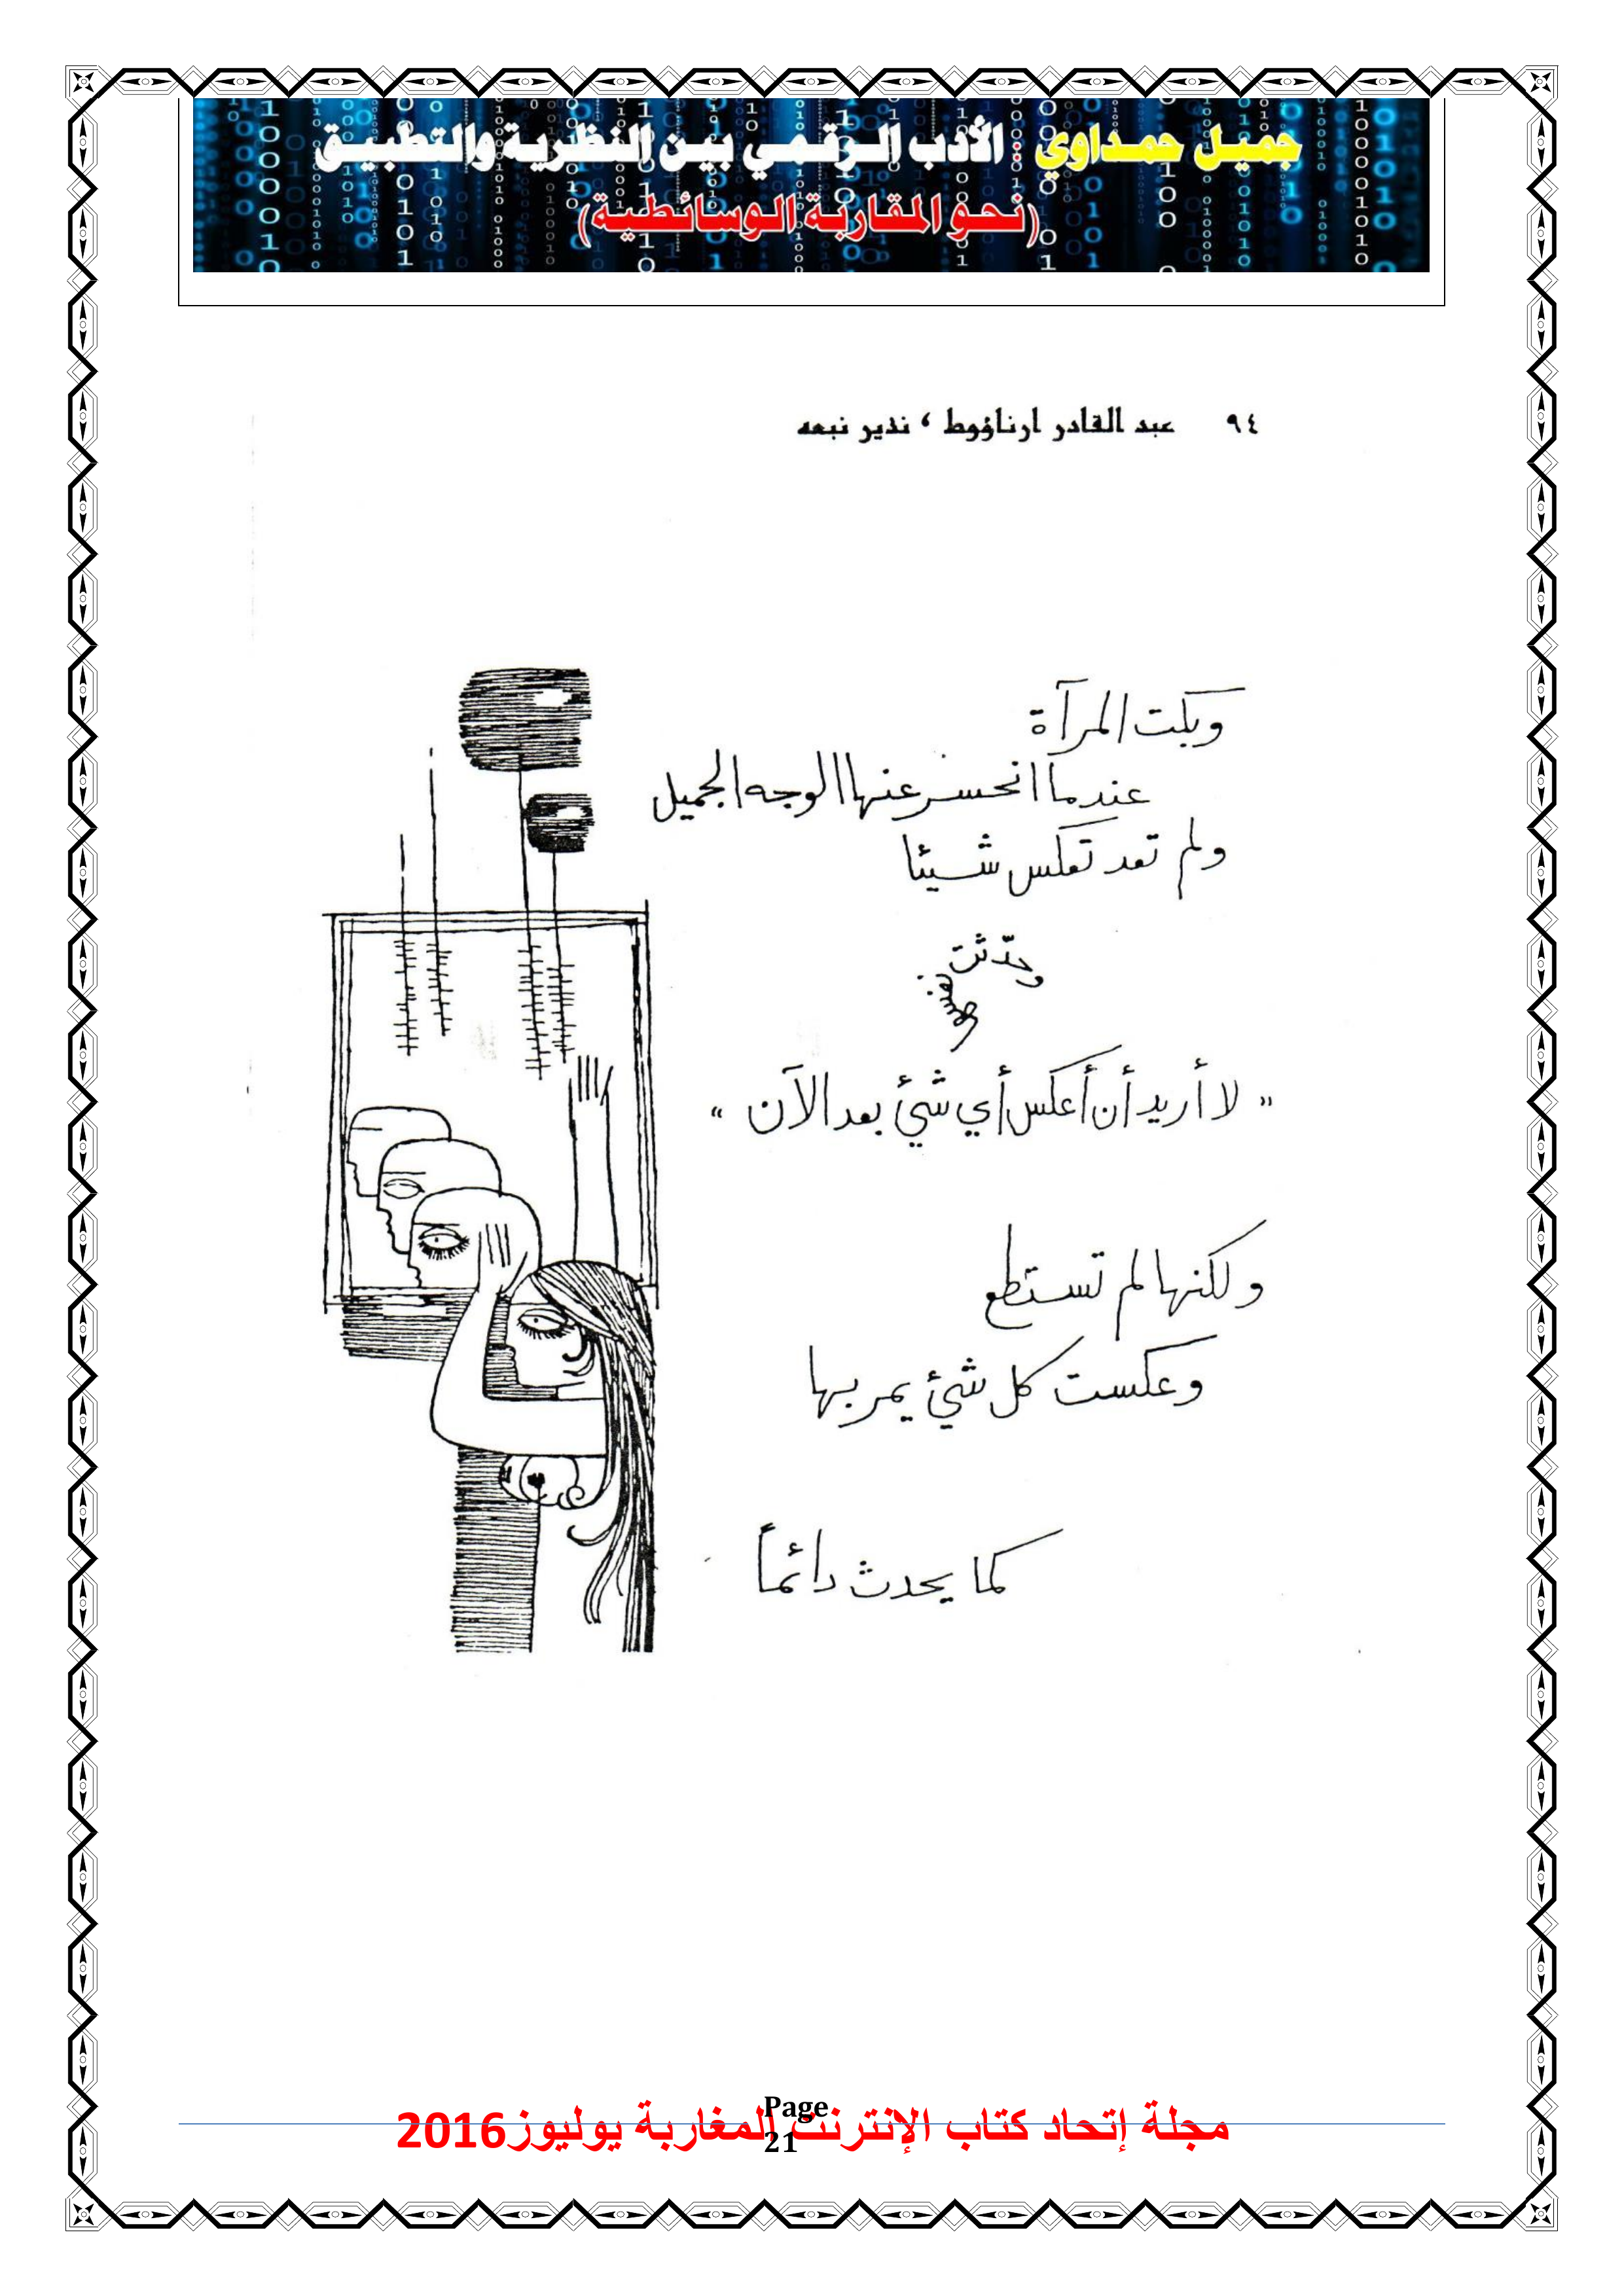 جميل حمداوي : الأدب الرقمي بين النظرية والتطبيق
(نحو المقاربة الوسائطية)
٩٤ عبد القادر ارناؤوط ، نذير نبعه
وبكت المرآة
عندما انحسر عنها الوجه الجميل
ولم تعد تعكس شيئا
وحدّثت نفسها
" لا أريد أن أعكس أي شيئ بعد الآن "
ولكنها لم تستطع
وعكست كل شيئ يمر بها
كما يحدث دائماً
Page
21
مجلة إتحاد كتاب الإنترنت المغاربة يوليوز2016